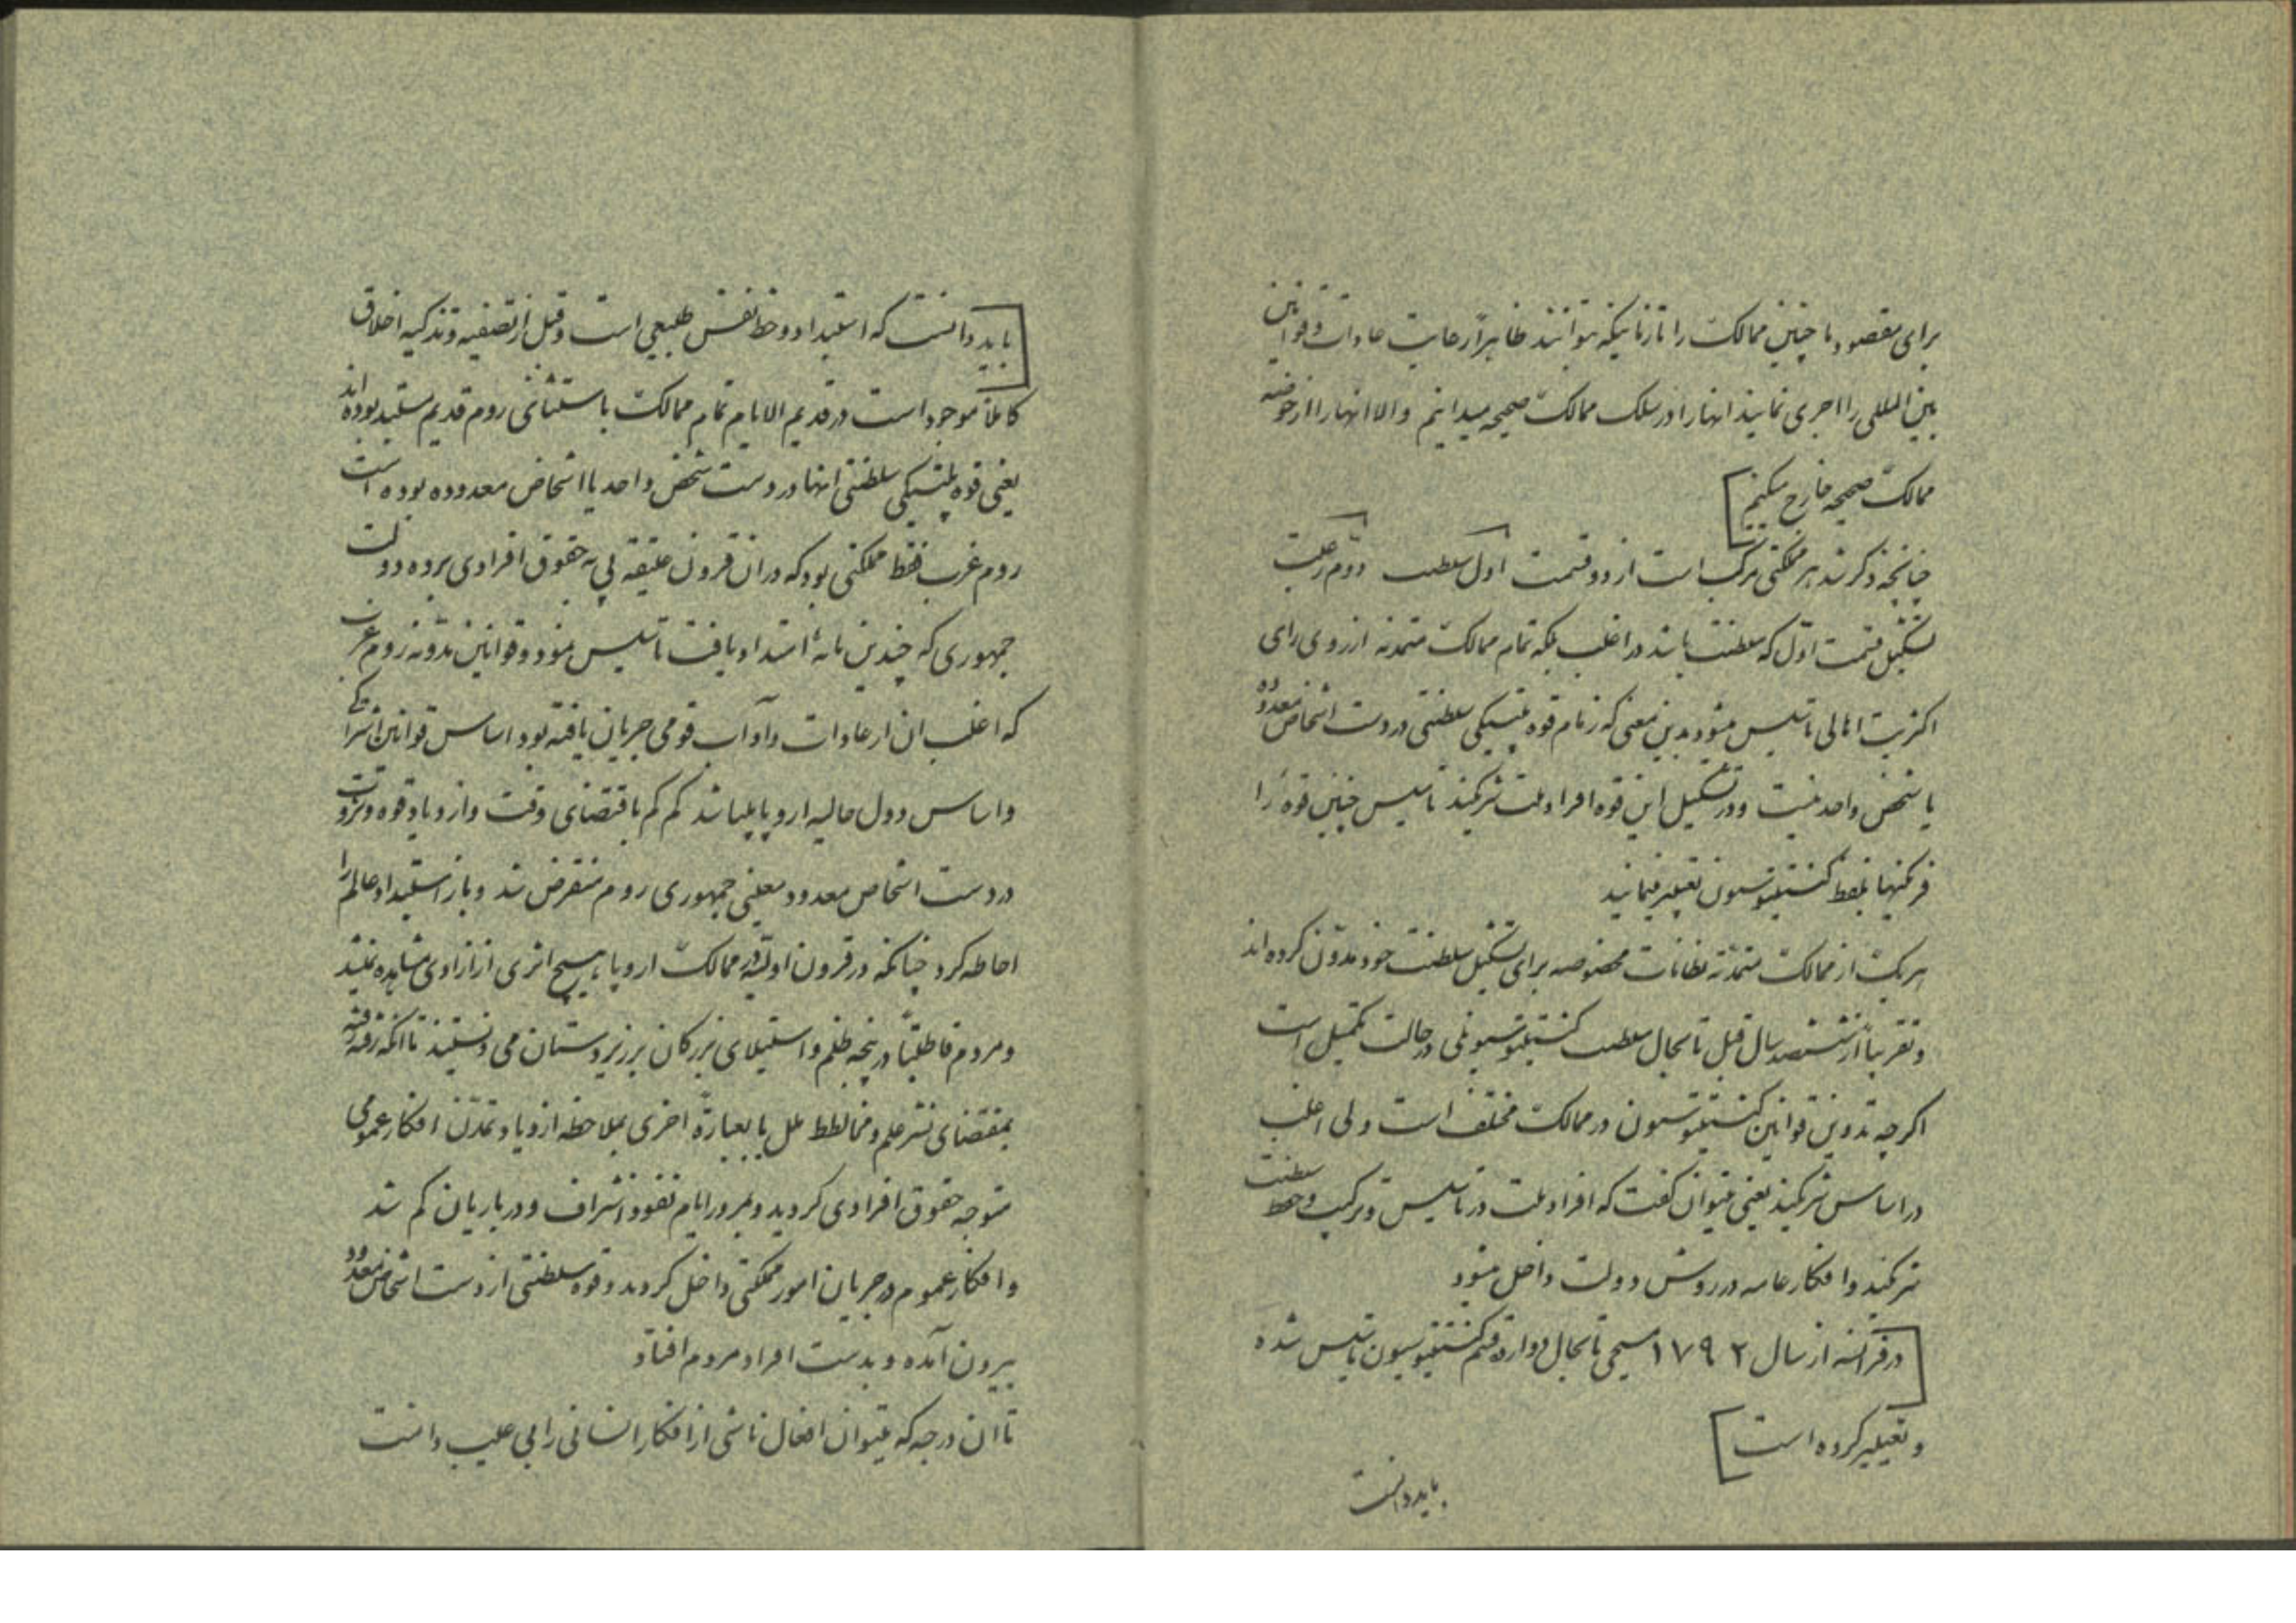 برای مقصود ما چنین ممالک را تا زمانیکه بتوانند ظاهراً رعایت عادات و قوانین
بین المللی را اجری نمایند انها را در سلک ممالک صحیحه میدانیم والا انها را از حوضه
ممالک صحیحه خارج میکنیم
چنانچه ذکر شد هر مملکتی مرکب است از دو قسمت اول سلطنت دوم رعیت
تشکیل قسمت اول که سلطنت باشد در اغلب بلکه تمام ممالک متمدنه از روی رای
اکثریت اهالی تاسیس میشود بدین معنی که زمام قوه پلتیکی سلطنتی در دست اشخاص معدود
یا شخص واحد نیست و در تشکیل این قوه افراد ملت شرکیند تاسیس چنین قوه را
فرنگیها بلفظ کنستیتوسیون تعبیر مینمایند
هریک از ممالک متمدنه نظامات مخصوصه برای تشکیل سلطنت خود مدون کرده اند
و تقریباً از ششصد سال قبل تا بحال سلطنت کنستیتوسیونلی در حالت تکمیل است
اگرچه تدوین قوانین کنستیتوسیون در ممالک مختلف است ولی اغلب
در اساس شرکیند یعنی میتوان گفت که افراد ملت در تاسیس و ترکیب و حفظ سلطنت
شرکیند و افکار عامه در روش دولت داخل میشود
در فرانسه از سال ۱۷۹۲ مسیحی تا بحال دوازده قسم کنستیتوسیون تاسیس شده
و تغییر کرده است
باید دانست
باید دانست که استبداد و حظ نفس طبیعی است و قبل از تصفیه و تزکیه اخلاق
کاملاً موجود است در قدیم الایام تمام ممالک باستثنای روم قدیم مستبد بوده اند
یعنی قوه پلتیکی سلطنتی انها در دست شخص واحد یا اشخاص معدوده بوده است
روم غرب فقط مملکتی بود که در ان قرون عتیقه پی به حقوق افرادی برده دولت
جمهوری که چندین مائه امتداد یافت تاسیس نمود و قوانین مدونه روم غرب
که اغلب ان از عادات و آداب قومی جریان یافته بود اساس قوانین اشتراکی
و اساس دول حالیه اروپا پلیا شد کم کم باقتضای وقت و ازدیاد قوه و ثروت
در دست اشخاص معدود معینی جمهوری روم منقرض شد و باز استبداد عالم را
احاطه کرد چنانکه در قرون اولیه در ممالک اروپا هیچ اثری از ازادی مشاهده نمیشد
و مردم قاطبتاً در پنجه ظلم و استیلای بزرگان بر زیردستان می زیستند تا انکه رفته رفته
بمقتضای نشر علم و مخالطه ملل یا بعبارة اخری بملاحظه ازدیاد تمدن افکار عمومی
متوجه حقوق افرادی گردید و بمرور ایام نفوذ اشراف و درباریان کم شد
و افکار عموم در جریان امور مملکتی داخل گردید و قوه سلطنتی از دست اشخاص معدود
بیرون آمده و بدست افراد مردم افتاد
تا ان درجه که میتوان افعال ناشی از افکار انسانی را بی عیب دانست